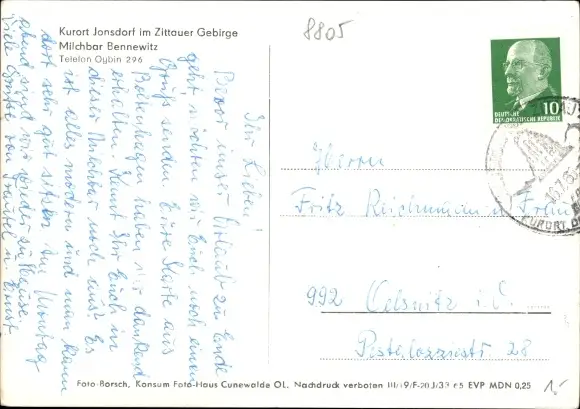 Kurort Jonsdorf im Zittauer Gebirge
Milchbar Bennewitz
Telefon Oybin 296
8805
DEUTSCHE
DEMOKRATISCHE REPUBLIK
10
KURORT
Ihr Lieben!
Bevor unser Urlaub zu Ende
geht möchten wir Euch noch einen
Gruß senden. Eure Karte aus
Boltenhagen haben wir dankend
erhalten. Kennt Ihr Euch in
dieser Milchbar noch aus? Es
ist alles modern und man kann
dort sehr gut sitzen. Am Montag
abend sind wir wieder zu Hause.
Viele Grüße von und Ernst
Herrn
Fritz Reichmann u. Frau
992 Oelsnitz i. V.
Pestalozzistr. 28
Foto-Borsch, Konsum Foto-Haus Cunewalde OL. Nachdruck verboten III/19/F-20 J/33 65 EVP MDN 0,25
1,-